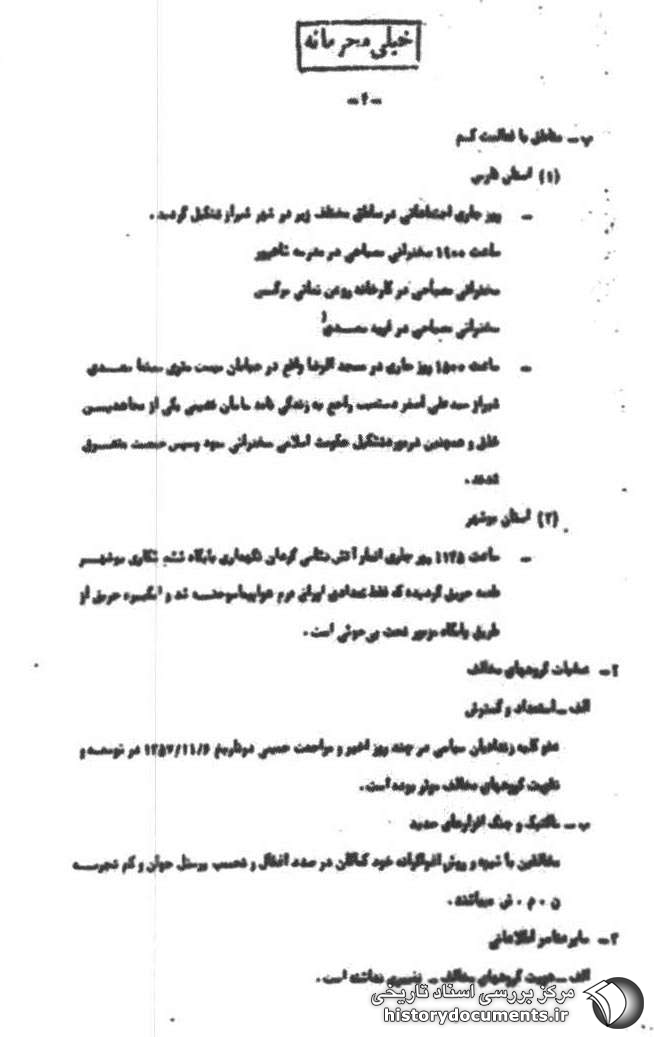 خیلی محرمانه
ـ ۴ ـ
ب ـ مناطق با فعالیت کم
(۱) استان فارس
ـ روز جاری اجتماعاتی در مناطق مختلف زیر در شهر شیراز تشکیل گردید .
ساعت ۱۴۰۰ سخنرانی مصباحی در مدرسه شاهپور
سخنرانی مصباحی در کارخانه روغن نباتی نرگس
سخنرانی مصباحی در
ـ ساعت ۱۵۰۰ روز جاری در مسجد الرضا واقع در خیابان بیست متری سینما سعدی
شیراز سید علی اصغر دستغیب راجع به زندگی نامه یکی از مجاهدین
خلق و همچنین در مورد تشکیل حکومت اسلامی سخنرانی نمود و سپس جمعیت متفرق
شدند .
(۲) استان بوشهر
ـ ساعت ۱۱۴۵ روز جاری انبار نگهداری پایگاه ششم شکاری بوشهر
طعمه حریق گردیده که فقط تعدادی هواپیما سوخته شد و انگیزه حریق از
طریق پایگاه مزبور تحت بررسی است .
۲ ـ عملیات گروههای مخالف
الف ـ استعداد و گسترش
عفو کلیه زندانیان سیاسی در چند روز اخیر و مراجعت خمینی در تاریخ ۱۳۵۷/۱۱/۶ در توسعه و
تقویت گروههای مخالف موثر بوده است .
ب ـ تاکتیک و جنگ افزارهای جدید
مخالفین با شیوه و روش اغواگرانه خود کماکان در صدد اغفال و پرسنل جوان و کم تجربه
ن . م . ش میباشند .
۳ ـ سایر عناصر اطلاعاتی
الف ـ گروههای مخالف ـ تغییری نداشته است .
مرکز بررسی اسناد تاریخی
historydocuments.ir